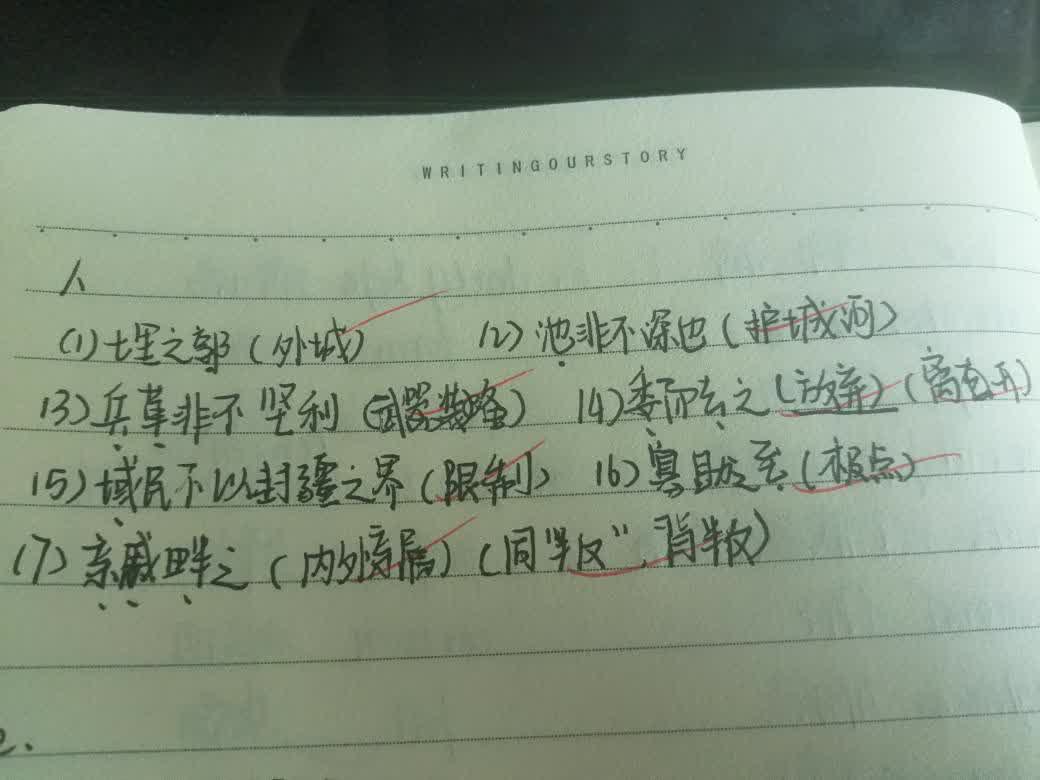 WRITINGOURSTORY
人
(1) 七里之郭（外城） (2) 池非不深也（护城河）
(3) 兵革非不坚利（武器装备） (4) 委而去之（放弃）（离开）
(5) 域民不以封疆之界（限制） (6) 寡助之至（极点）
(7) 亲戚畔之（内外亲属）（同“叛”，背叛）
2.